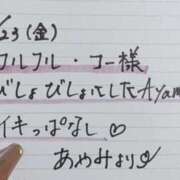 /23 (金)
フルフル・コー様
びしょびしょにしたAyam
イキっぱなし♡
あやみより